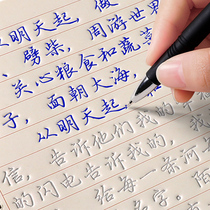 从明天起，做
、劈柴，周游世界
，关心粮食和蔬菜
子，面朝大海，
从明天起，
信，告诉他们我的
的闪电告诉我的，
给每一条河